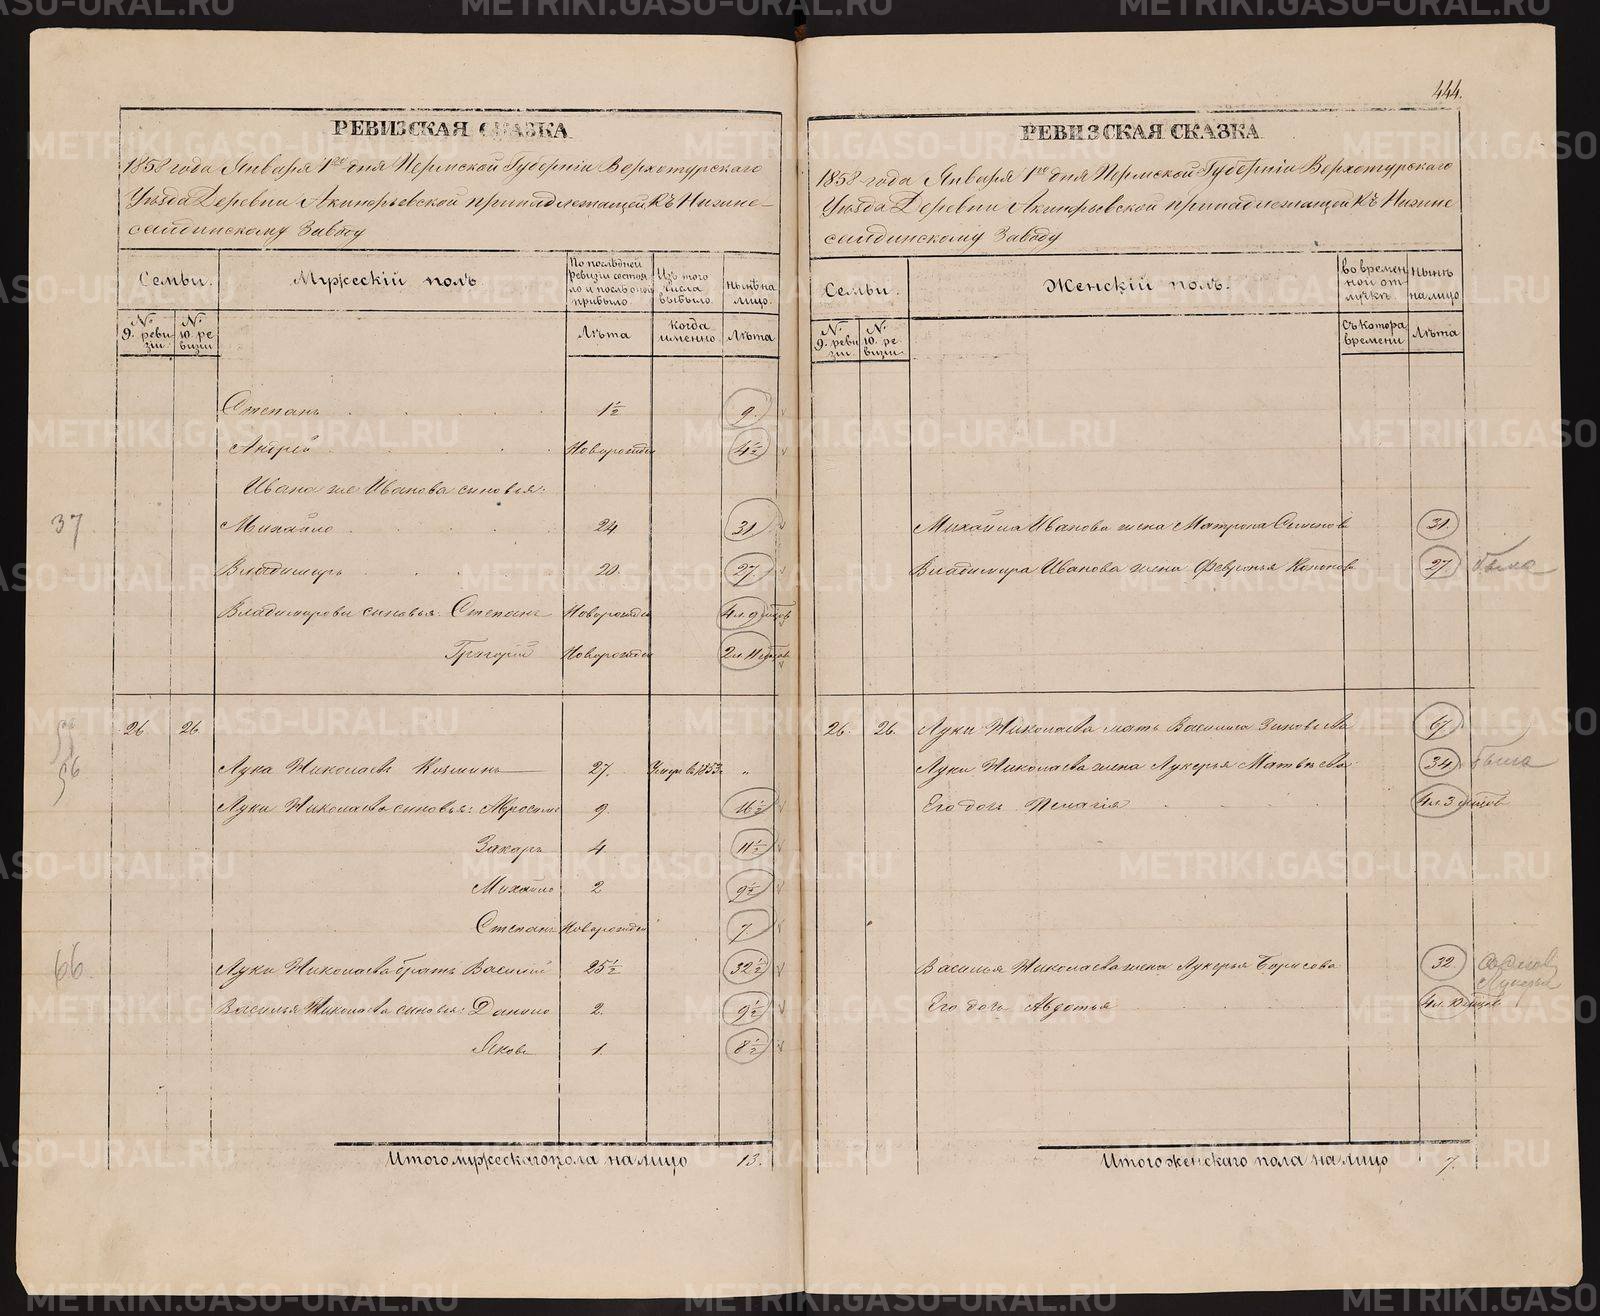 444.
РЕВИЗСКАЯ СКАЗКА
1858 года Января 1го дня Пермской Губерніи Верхотурскаго
Уѣзда Деревни Акинфьевской принадлежащей Къ Нижне-
салдинскому Заводу
Семьи. Мужескій полъ По послѣдней ревизіи состояло и послѣ оной прибыло. Изъ того числа выбыло. нынѣ на лицо.
№ 9. ревизіи № 10. ревизіи Лѣта когда именно Лѣта
Степанъ 1½ 9.
Андрей Новорожден 4½
Ивана же Иванова сыновья:
37 Михайло 24 31
Владимиръ 20. 27
Владимировы сыновья: Степанъ Новорожден 4 л. 9 мцов
Григорій Новорожден 2 л 11 мцов
26 26
56 Лука Николаевъ Козминъ 27. Умеръ въ 1853. "
Луки Николаева сыновья: Абросимъ 9. 16½
Захаръ 4. 11½
Михайло 2 9½
Степанъ Новорожден 7.
66. Луки Николаева братъ Василій 25½ 32½
Василья Николаева сыновья: Данило 2. 9½
Яковъ 1. 8½
Итого мужескаго пола на лицо 13.
РЕВИЗСКАЯ СКАЗКА
1858 года Января 1го дня Пермской Губерніи Верхотурскаго
Уѣзда Деревни Акинфьевской принадлежащей Къ Нижне
салдинскому Заводу
Семьи. Женскій полъ. во временной отлучкѣ. Нынѣ на лицо
№ 9. ревизіи № 10. ревизіи Съ котора времени Лѣта
Михайла Иванова жена Матрона Семенов 31.
Владимира Иванова жена Февронья Кононов 27
26. 26. Луки Николаева мать Василиса Зиновьева 67
Луки Николаева жена Лукерья Матвѣева 34
Его дочь Пелагія 4 л. 3 мцов
Василья Николаева жена Лукерья Борисова 32
Лукерья
Его дочь Авдотья 4 л. 10 мцов
Итого женскаго пола на лицо 7.
METRIKI.GASO-URAL.RU